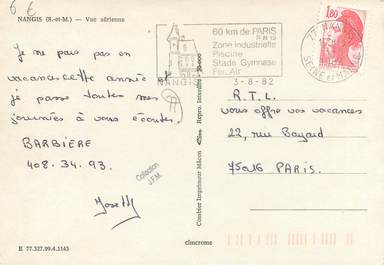 6 €
NANGIS (S.-et-M.) — Vue aérienne
Je ne pars pas en
vacances cette année et
je passe toutes mes
journées à vous écouter.
BARBIERE
408.34.93.
Josette
Collection
J.F.M.
E 77.327.99.4.1143
Repro. Interdite
Combier Imprimeur Mâcon
cimcrome
NANGIS
60 km de PARIS
R N 19
Zone industrielle
Piscine
Stade Gymnase
For. Air
3-8-82
77 NANGIS
SEINE ET MARNE
1,80
R.T.L.
vous offre vos vacances
22, rue Bayard
75016 PARIS.